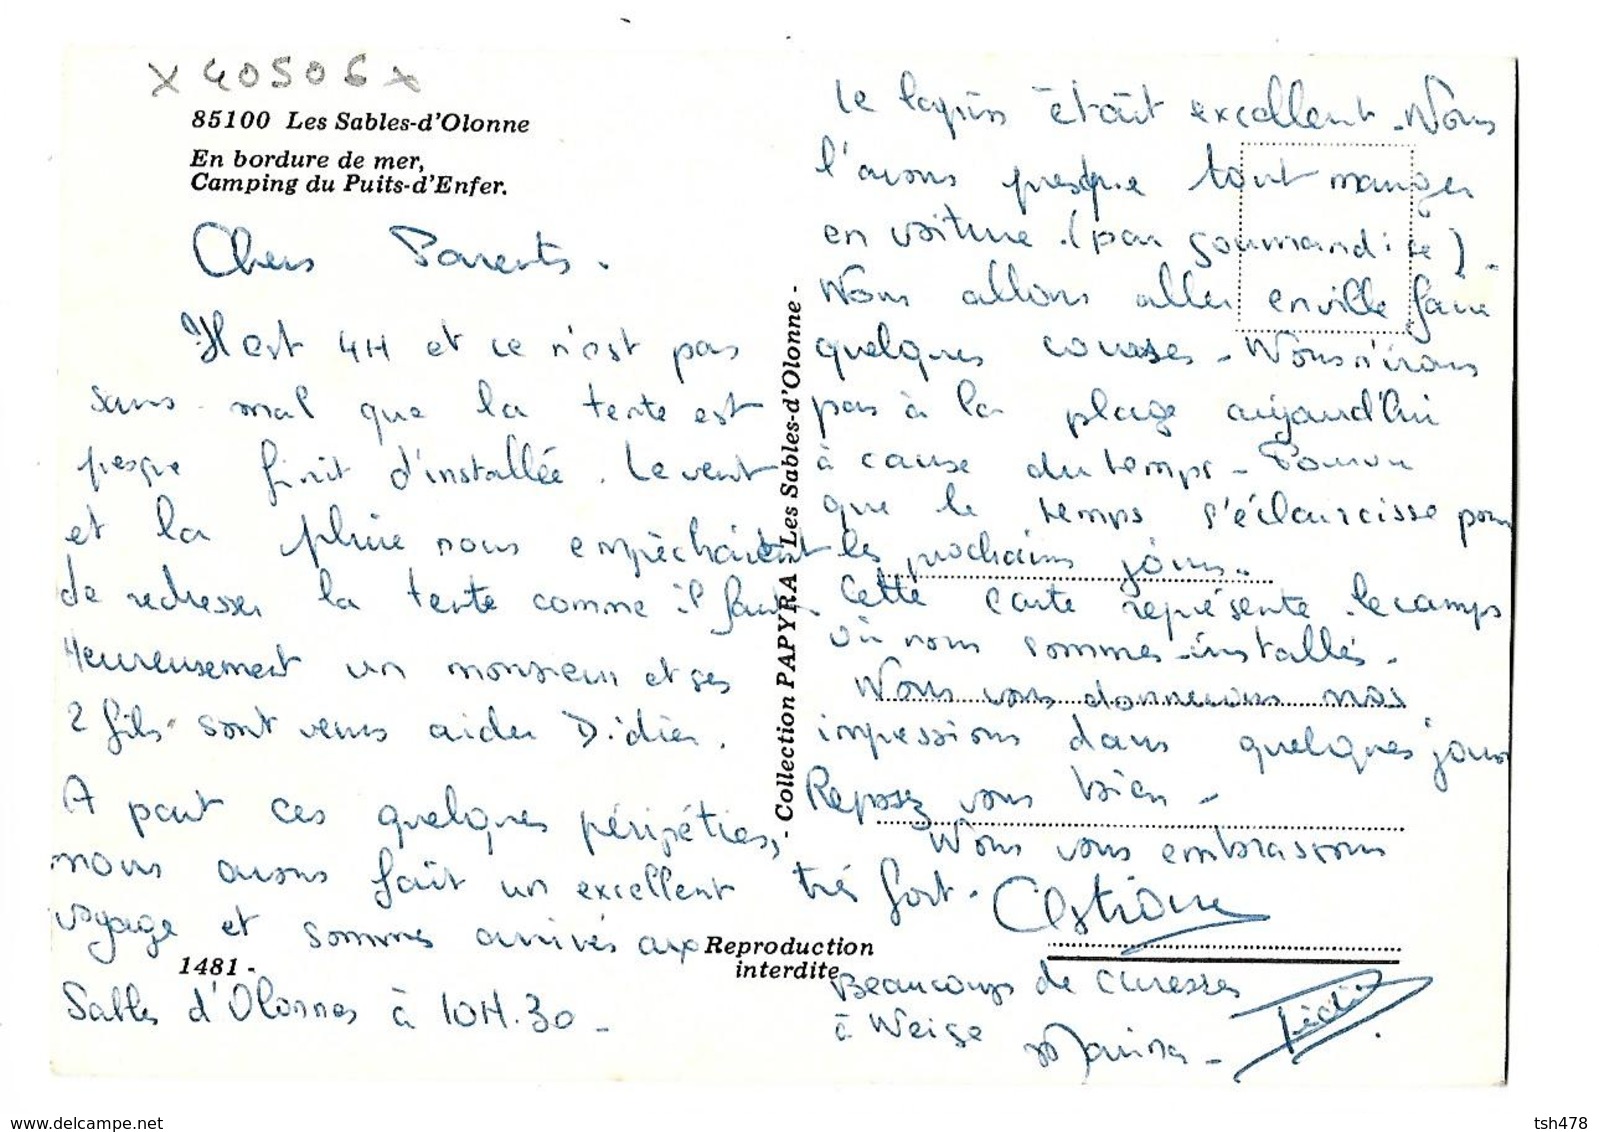 x 40506 x
85100 Les Sables-d'Olonne
En bordure de mer,
Camping du Puits-d'Enfer.
Chers Parents.
Il est 4H et ce n'est pas
sans mal que la tente est
presque finit d'installée. Le vent
et la pluie nous empêchaient
de redresser la tente comme il faut.
Heureusement un monsieur et ses
2 fils sont venus aider Didier.
A part ces quelques péripéties,
nous avons fait un excellent
voyage et sommes arrivés aux
Sables d'Olonnes à 10H.30 -
1481 -
Reproduction
interdite
- Collection PAPYRA - Les Sables-d'Olonne -
Le lapin était excellent - Nous
l'avons presque tout manger
en voiture. (par gourmandise) -
Nous allons aller en ville faire
quelques courses - Nous n'irons
pas à la plage aujourd'hui
à cause du temps - Pourvu
que le temps s'éclaircisse pour
les prochains jours.
Cette carte représente le camps
où nous sommes installés.
Nous vous donnerons nos
impressions dans quelques jours
Reposez vous bien -
Nous vous embrassons
très fort.
Beaucoups de caresses
à Neige
delcampe.net
tsh478